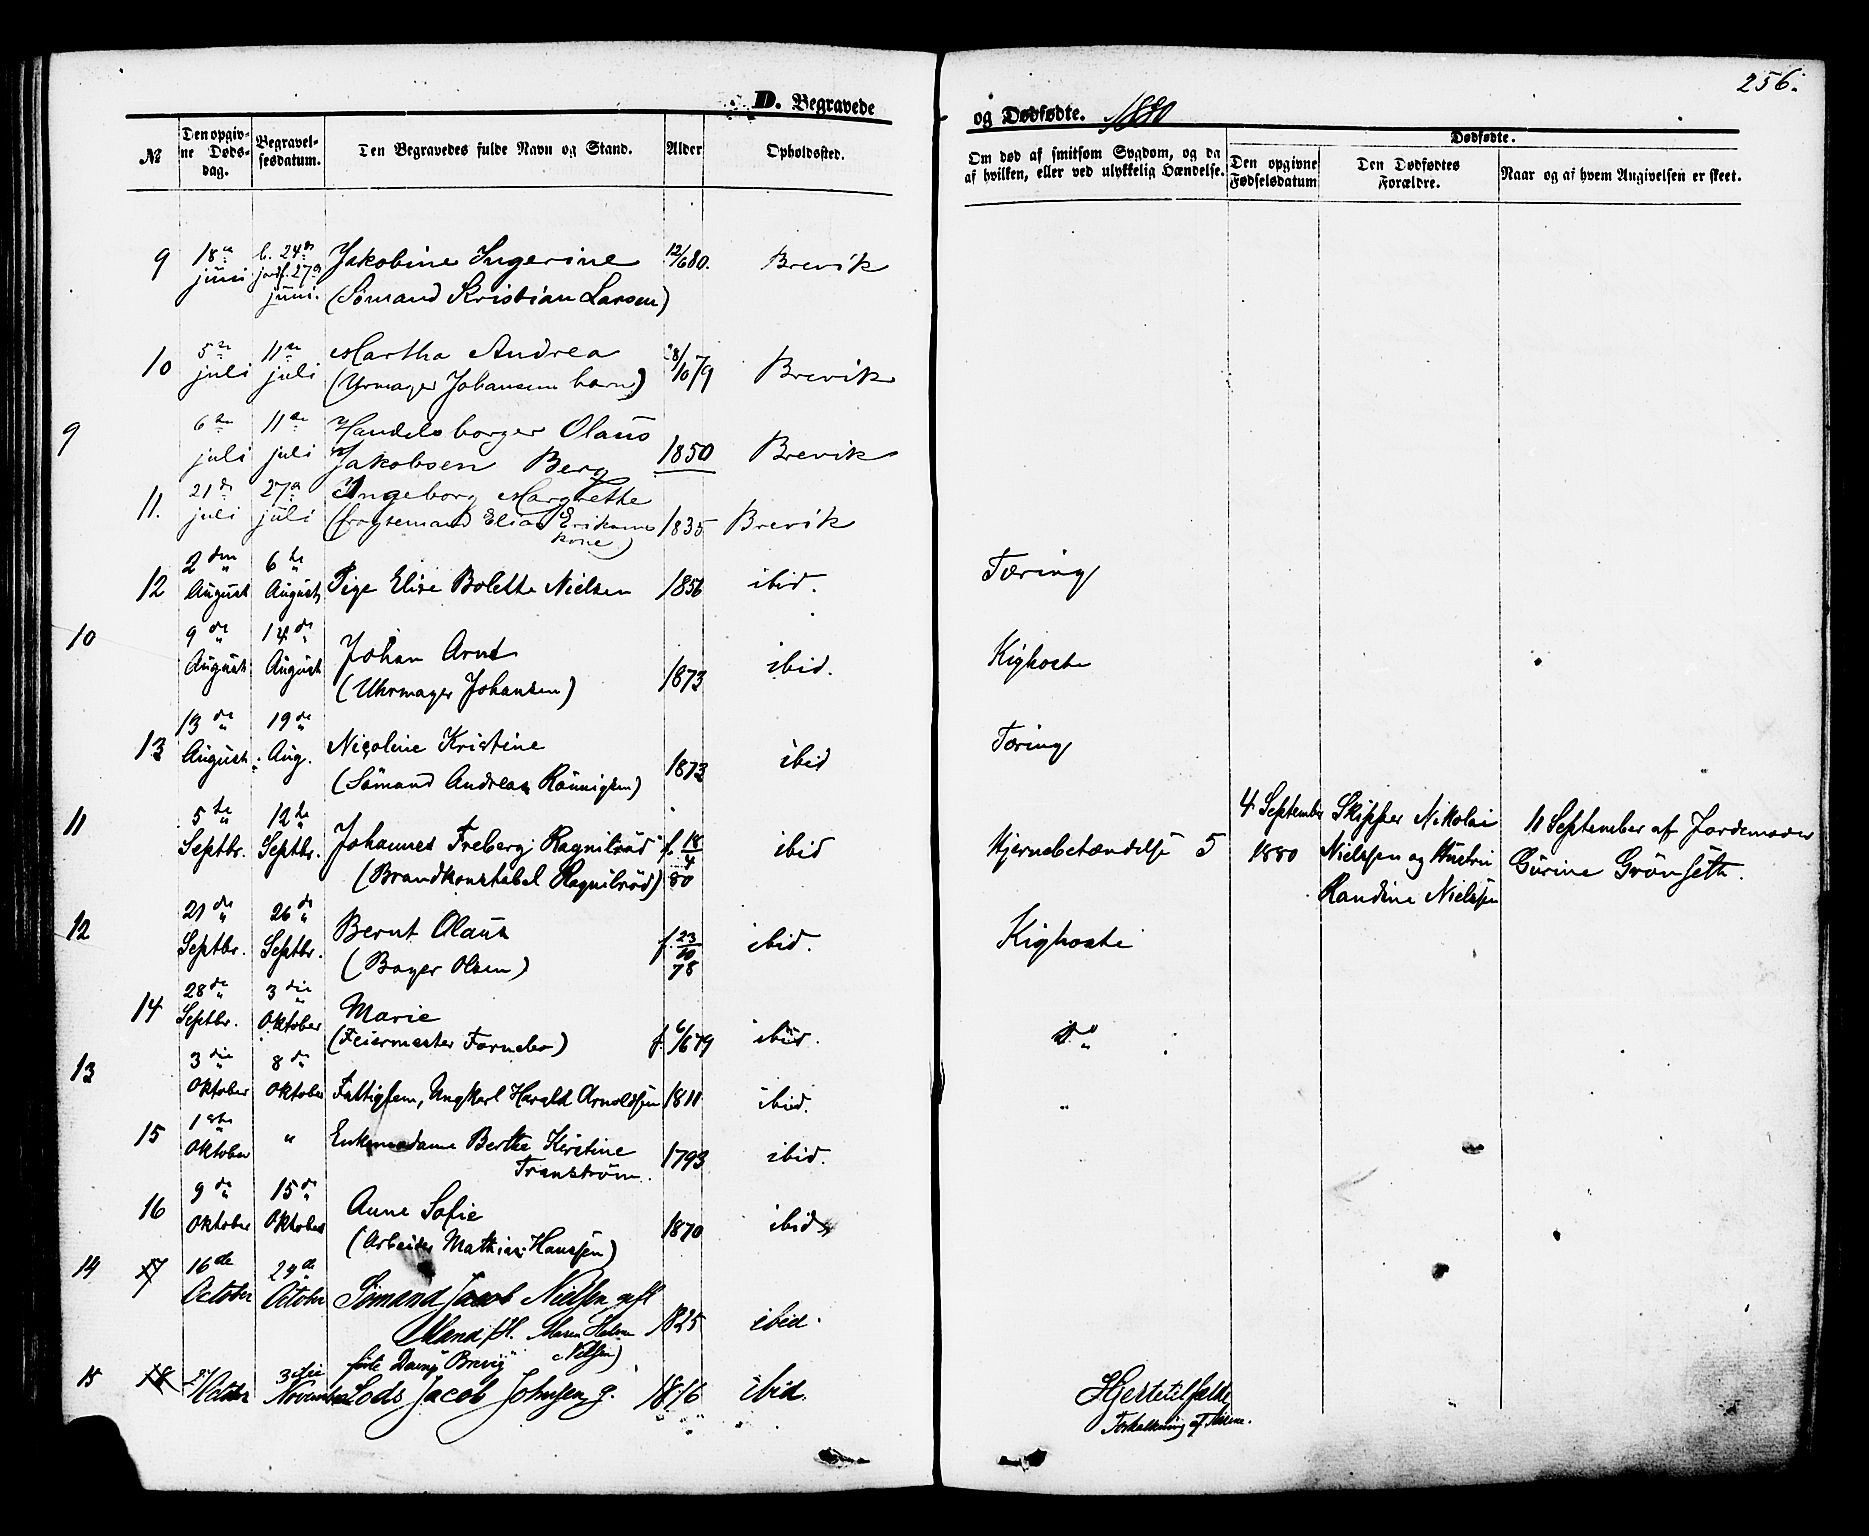 256.
D. Begravede
og Dødfødte. 1880
№
Den opgiv-
ne Døds-
dag.
Begravel-
sesdatum.
Den Begravedes fulde Navn og Stand.
Alder
Opholdssted.
Om død af smitsom Sygdom, og da
af hvilken, eller ved ulykkelig Hændelse.
Dødfødte.
Den opgivne
Fødselsdatum
Den Dødfødtes
Forældre.
Naar og af hvem Angivelsen er skeet.
9 18de b. 24de Jakobine Ingerine 12/6 80. Brevik
juni jordf. 27de
juni. (Sømand Kristian Larsen)
10 5te 11te Martha Andrea Brevik
juli juli (Urmager Johansens barn)
9 6te 11te Handelsborger Olaus 1850 Brevik
juli juli Jakobsen Berg
11. 21de 27de Ingeborg Margrethe 1835 Brevik
juli juli Elias Eriksens
kone)
12 2den 6te
August August Pige Elise Bolette Nielsen 1856 ibid. Tæring
10 9de 14de Johan Arnt ibid. Kighoste
August August (Uhrmager Johansen) 1873
13 13de 19de Nicoline Kristine ibid Tæring
August Aug. (Sömand Andreas Rönnigsen) 1873
11 5te 12te
Septbr. Septbr. Johannes Freberg Ragnilröd f. 18/4 80 ibid Hjernebetændelse
(Brandkonstabel Ragnilröd)
5 4 September Skipper Nikolai 11 September af Jordemoder
1880 Nielssen og Hustru Gurine Grönseth.
Randine Nielssen
12 21de 26de Bernt Olaus f. 23/10 78 ibid. Kighoste
Septbr. Septbr. (Bager Olsen)
14 28de 3die Marie
Septbr. Oktober (Feiermester Fornebo) f. 6/6 79 ibid. do
13 3die 8de
Oktober Oktober Fattiglem, Ungkarl Harald Arnoldsen 1811 ibid. "
15 1ste " Enkemadame Berthe Kirstine 1793 ibid.
Oktober Tranström.
16 9de 15de Anne Sofie
Oktober Oktober (Arbeider Mathias Hanssen) 1870 ibid.
14 17 16de 29de
October October Sømand Jacob Nielsen gift 1825 ibid.
Maren Helene
Nielsen)
"Brevig"
15 18 October 3die
November Lods Jacob Johnsen g. 1816 ibid. Hjertetilfælde
Forkalkning af